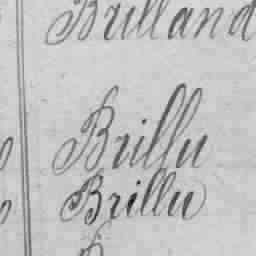 Brilland
Brillu
Brillu